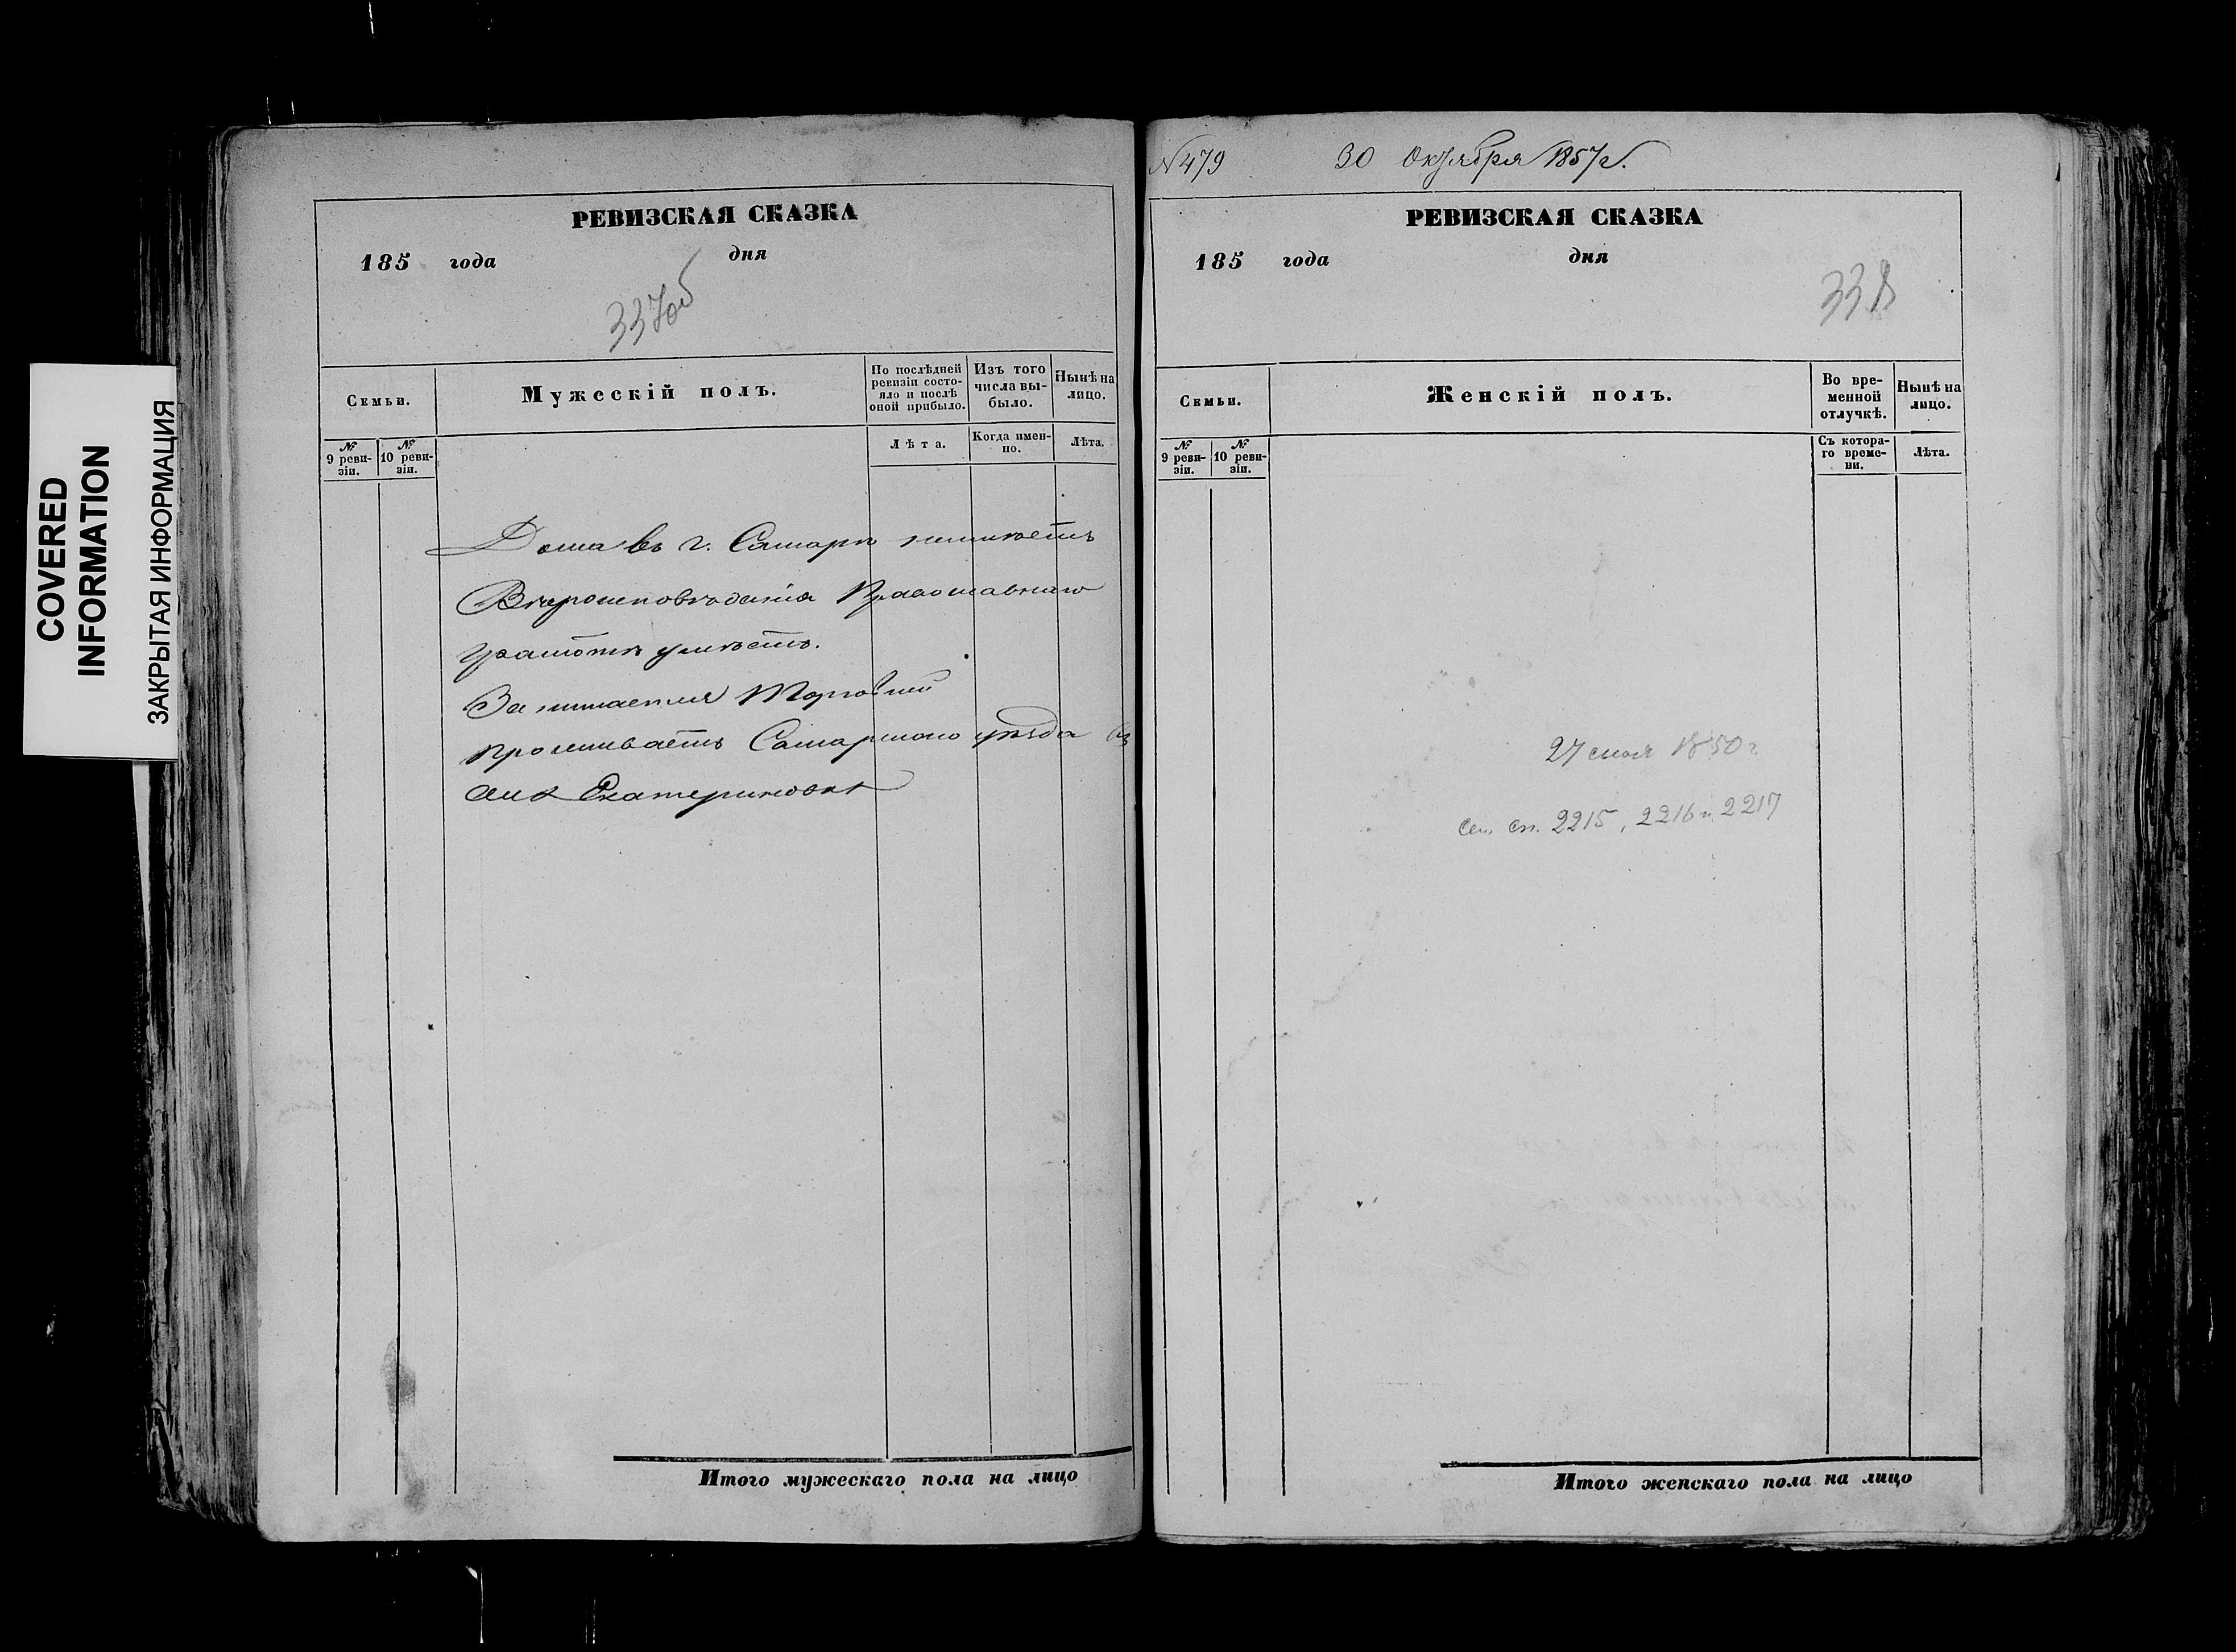 COVERED
INFORMATION
ЗАКРЫТАЯ ИНФОРМАЦИЯ
РЕВИЗСКАЯ СКАЗКА
185 года дня
337об
Семьи.
Мужескій полъ.
По послѣдней ревизіи состояло и послѣ оной прибыло.
Изъ того числа выбыло.
Нынѣ на лицо.
№ 9 ревизіи.
№ 10 ревизіи.
Лѣта.
Когда именно.
Лѣта.
Дома въ г. Самарѣ неимѣетъ
Вѣроисповѣданія Православнаго
грамотѣ умѣетъ.
Занимается Торговлей
проживаетъ Самарскаго уѣзда въ
селѣ Екатериновкѣ
Итого мужескаго пола на лицо
№ 479 30 Октября 1857 г.
РЕВИЗСКАЯ СКАЗКА
185 года дня
338
Семьи.
Женскій полъ.
Во временной отлучкѣ.
Нынѣ на лицо.
№ 9 ревизіи.
№ 10 ревизіи.
Съ котораго времени.
Лѣта.
27 1850 г
сп. 2215, 2216 и 2217
Итого женскаго пола на лицо